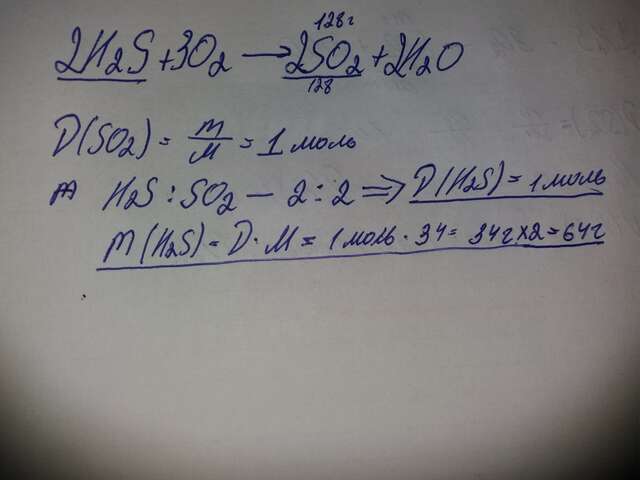 128г
2H₂S + 3O₂ → 2SO₂ + 2H₂O
128
D(SO₂) = m/M = 1 моль
H₂S : SO₂ — 2 : 2 ⇒ D(H₂S) = 1 моль
m(H₂S) = D · M = 1 моль · 34 = 34г × 2 = 64г